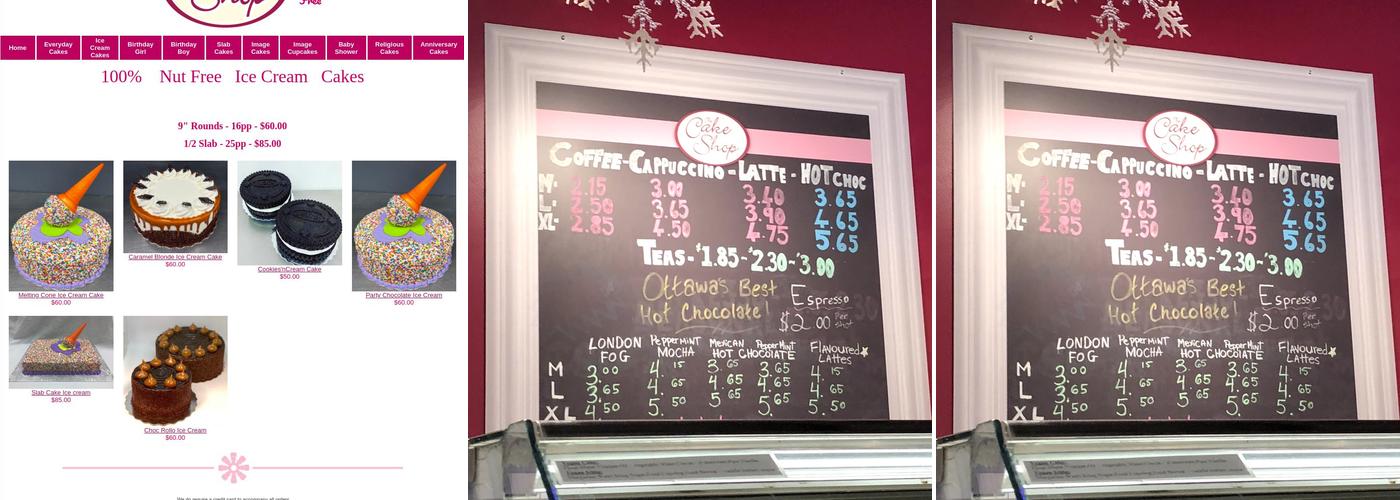 Shop
Free
Home
Everyday Cakes
Ice Cream Cakes
Birthday Girl
Birthday Boy
Slab Cakes
Image Cakes
Image Cupcakes
Baby Shower
Religious Cakes
Anniversary Cakes
100% Nut Free Ice Cream Cakes
9" Rounds - 16pp - $60.00
1/2 Slab - 25pp - $85.00
Melting Cone Ice Cream Cake
$60.00
Caramel Blonde Ice Cream Cake
$60.00
Cookies'nCream Cake
$50.00
Party Chocolate Ice Cream
$60.00
Slab Cake Ice cream
$85.00
Choc Rollo Ice Cream
$60.00
We do require a credit card to accompany all orders
The Cake Shop
COFFEE - CAPPUCCINO - LATTE - HOT CHOC
2.15 3.00 3.40 3.65
L: 2.50 3.65 3.90 4.65
XL: 2.85 4.50 4.75 5.65
TEAS - $1.85 ~ $2.30 ~ $3.00
Ottawa's Best
Hot Chocolate!
Espresso
$2.00 Per shot
LONDON FOG PepperMINT MOCHA MEXICAN HOT CHOCOLATE PepperMint Flavoured Lattes
M 3.00 4.15 3.65 3.65 4.15
L 3.65 4.65 4.65 4.65 4.65
XL 4.50 5.50 5. 5.65 5.50
The Cake Shop
COFFEE - CAPPUCCINO - LATTE - HOT CHOC
2.15 3.00 3.40 3.65
L: 2.50 3.65 3.90 4.65
XL: 2.85 4.50 4.75 5.65
TEAS - $1.85 ~ $2.30 ~ $3.00
Ottawa's Best
Hot Chocolate!
Espresso
$2.00 Per shot
LONDON FOG PepperMINT MOCHA MEXICAN HOT CHOCOLATE PepperMint Flavoured Lattes
M 3.00 4.15 3.65 3.65 4.15
L 3.65 4.65 4.65 4.65 4.65
XL 4.50 5.50 5. 5.65 5.50